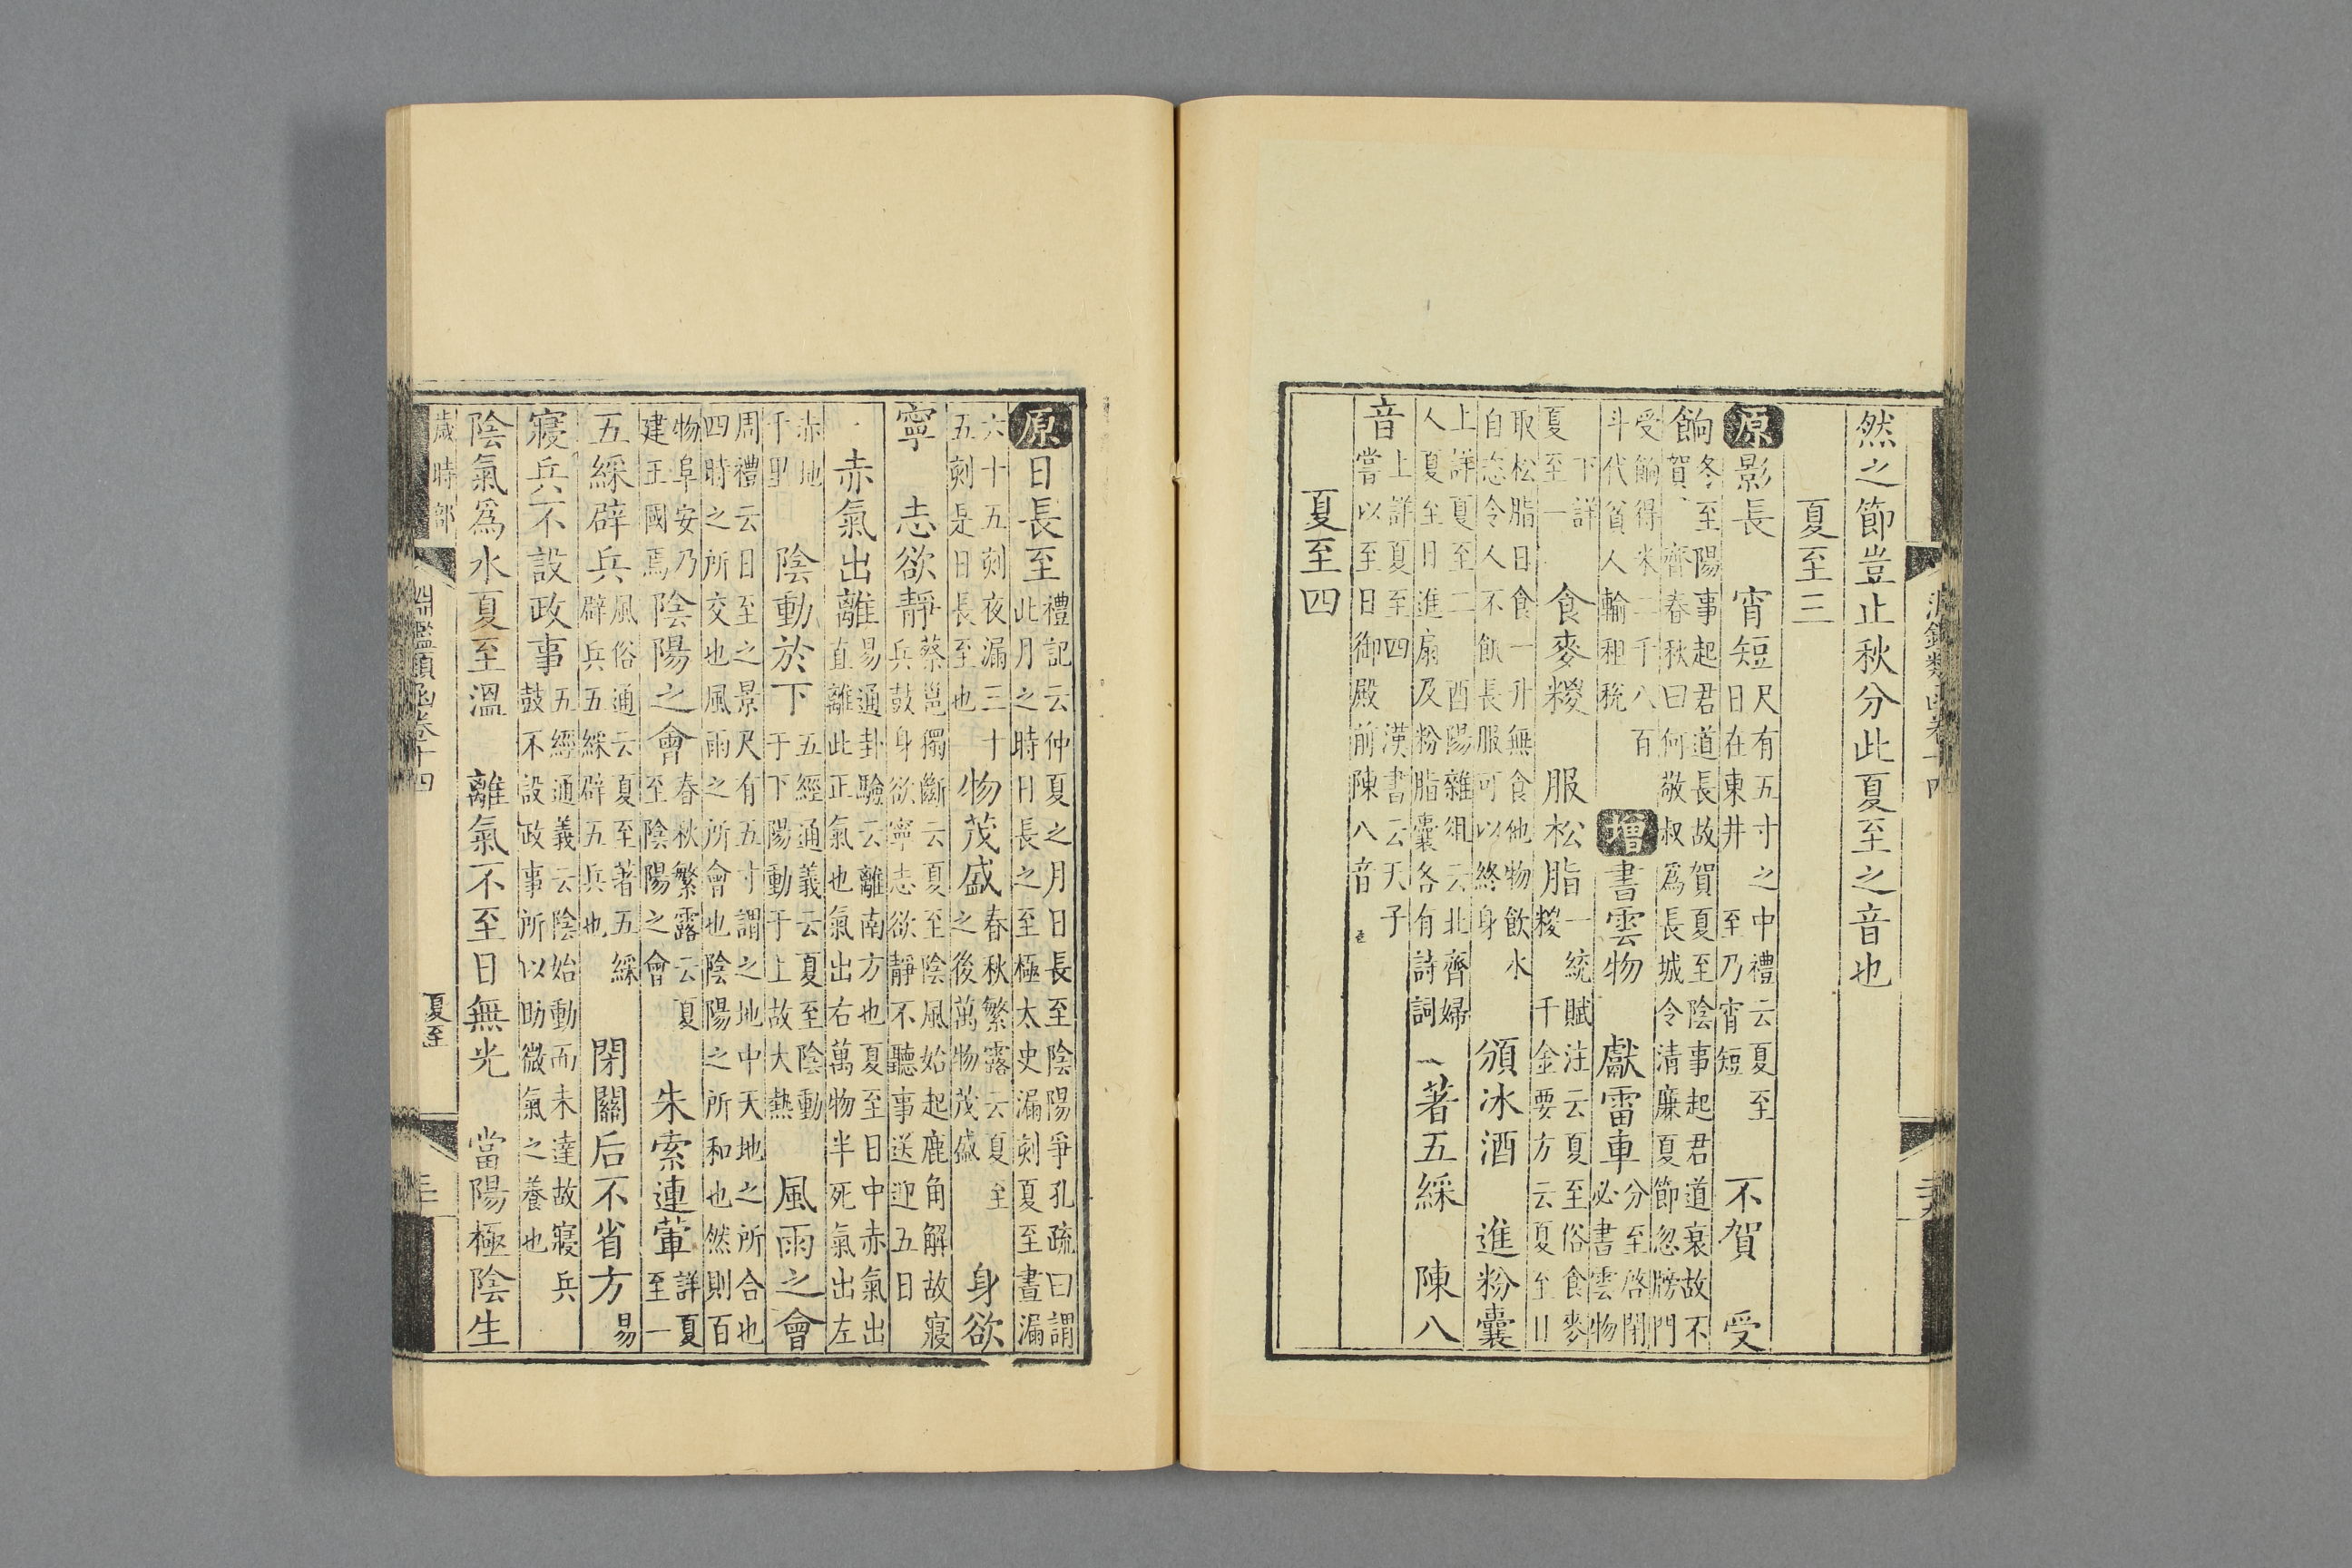 然之節豈止秋分此夏至之音也
夏至三
原影長 宵短尺有五寸之中禮云夏至日在東井 至乃宵短 不賀 受
餉冬至陽事起君道長故賀夏至陰事起君道衰故不賀 齊春秋曰何敬叔爲長城令清廉夏節忽牓門
受餉得米二千八百斗代貧人輸租稅 增書雲物 獻雷車分至啓閉必書雲物
下詳夏至一 食麥糉 服松脂一統賦注云夏至俗食麥糉 千金要方云夏至日
取松脂日食一升無食他物飲水自恣令人不飢長服可以終身 頒冰酒 進粉囊
上詳夏至二 酉陽雜俎云北齊婦人夏至日進扇及粉脂囊各有詩詞 著五綵 陳八
音上詳夏至四 漢書云天子嘗以至日御殿前陳八音
夏至四
原日長至禮記云仲夏之月日長至陰陽爭孔疏曰謂此月之時日長之至極太史漏刻夏至晝漏
六十五刻夜漏三十五刻是日長至也 物茂盛春秋繁露云夏至之後萬物茂盛 身欲
寧 志欲靜蔡邕獨斷云夏至陰風始起鹿角解故寢兵鼓身欲寧志欲靜不聽事送迎五日
赤氣出離易通卦驗云離南方也夏至日中赤氣出直離此正氣也氣出右萬物半死氣出左
赤地千里 陰動於下五經通義云夏至陰動于下陽動于上故大熱 風雨之會
周禮云日至之景尺有五寸謂之地中天地之所合也四時之所交也風雨之所會也陰陽之所和也然則百
物阜安乃建王國焉 陰陽之會春秋繁露云夏至陰陽之會 朱索連葷詳夏至一
五綵辟兵風俗通云夏至著五綵辟兵五綵辟五兵也 閉關后不省方易
寢兵不設政事五經通義云陰始動而未達故寢兵鼓不設政事所以助微氣之養也
陰氣爲水夏至溫 離氣不至日無光 當陽極陰生
歲時部 淵鑑類函卷十四 夏至